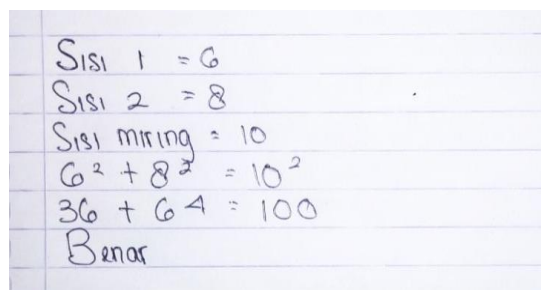 Sisi 1 = 6
Sisi 2 = 8
Sisi miring = 10
6² + 8² = 10²
36 + 64 = 100
Benar